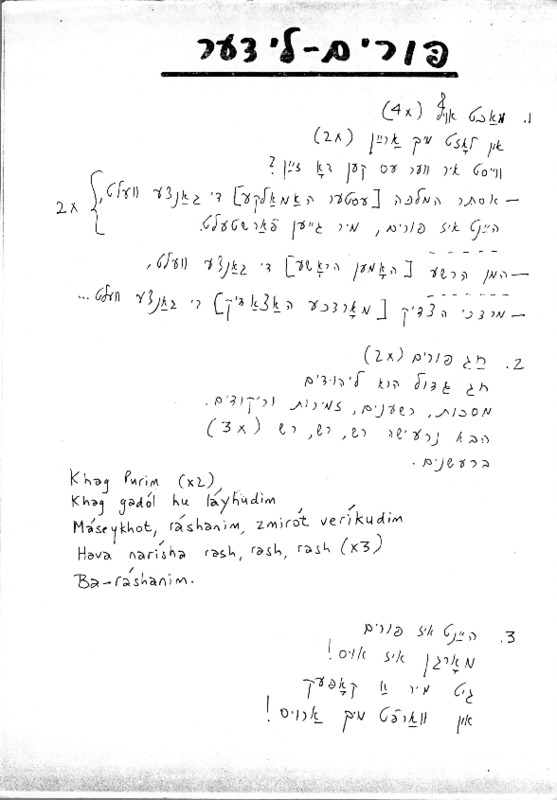 פורים-לידער
1. מאַכט אויף (4x)
און לאָזט מיך אַרײַן (2x)
ווייסט איר ווער עס קען דאָ זײַן?
2x { – אסתר המלכה [עסטער האַמאַלקע] די גאַנצע וועלט,
הײַנט איז פורים, מיר גייען פֿאַרשטעלט.
– המן הרשע [האָמען האָראָשע] די גאַנצע וועלט,
– מרדכי הצדיק [מאָרדכע האַצאַדיק] די גאַנצע וועלט...
2. חג פורים (2x)
חג גדול הוא ליהודים
מסכות, רעשנים, זמירות וריקודים.
הבא נרעישה רש, רש, רש (3x)
ברעשנים.
Khag Purim (x2)
Khag gadól hu láyhudim
Máseykhot, ráshanim, zmirót veríkudim
Hava narísha rash, rash, rash (x3)
Ba-ráshanim.
3. הײַנט איז פורים
מאָרגן איז אויס!
גיט מיר אַ קאָפּעק
און וואַרפֿט מיך אַרויס!